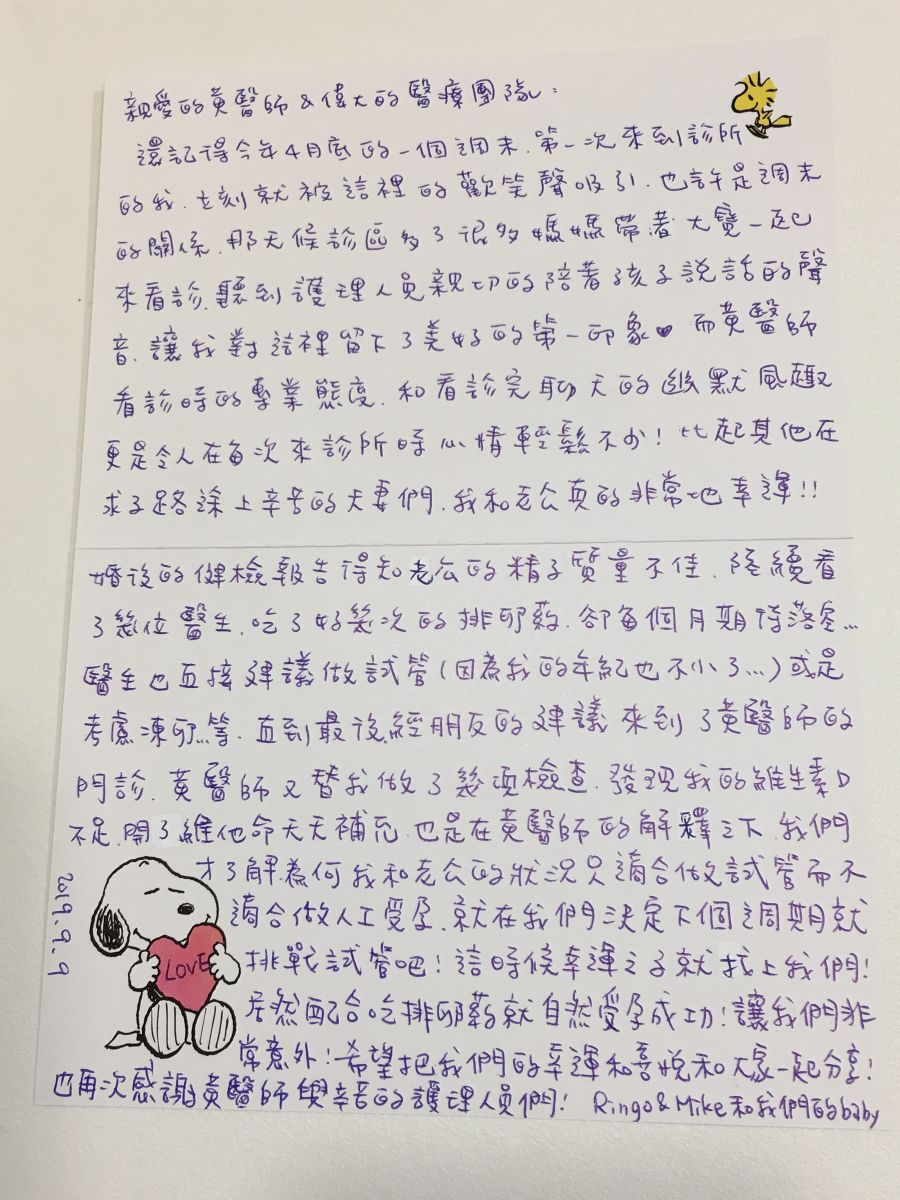 親愛的黃醫師&偉大的醫療團隊：
還記得今年4月底的一個週末.第一次來到診所
的我.立刻就被這裡的歡笑聲吸引.也許是週末
的關係.那天候診區多了很多媽媽帶著大寶一起
來看診.聽到護理人員親切的陪著孩子說話的聲
音.讓我對這裡留下了美好的第一印象♥ 而黃醫師
看診時的專業態度.和看診完聊天的幽默風趣
更是令人在每次來診所時心情輕鬆不少！比起其他在
求子路途上辛苦的夫妻們.我和老公真的非常地幸運!!
婚後的健檢報告得知老公的精子質量不佳.陸續看
了幾位醫生.吃了好幾次的排卵藥.卻每個月期待落空...
醫生也直接建議做試管(因為我的年紀也不小了...)或是
考慮凍卵等.直到最後經朋友的建議來到了黃醫師的
門診.黃醫師又替我做了幾項檢查.發現我的維生素D
不足.開了維他命天天補充.也是在黃醫師的解釋之下.我們
才了解為何我和老公的狀況只適合做試管而不
適合做人工受孕.就在我們決定下個週期就
挑戰試管吧！這時候幸運之子就找上我們！
居然配合吃排卵藥就自然受孕成功！讓我們非
常意外！希望把我們的幸運和喜悅和大家一起分享！
也再次感謝黃醫師與辛苦的護理人員們！ Ringo&Mike和我們的baby
2019.9.9
LOVE